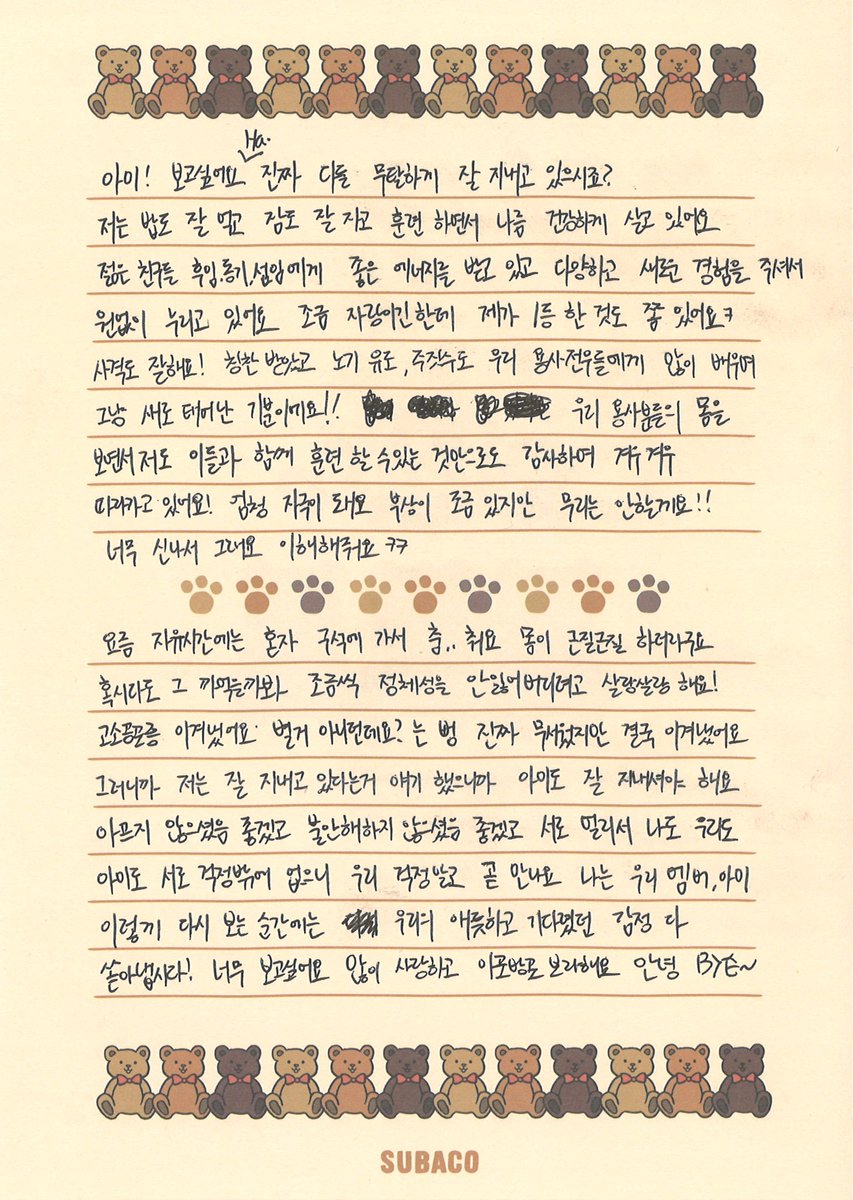 Ha.
아미! 보고싶어요 진짜 다들 무탈하게 잘 지내고 있으시죠?
저는 밥도 잘 먹고 잠도 잘 자고 훈련 하면서 나름 건강하게 살고 있어요
젊은 친구들 후임,동기,선임에게 좋은 에너지를 받고 있고 다양하고 새로운 경험을 주셔서
원없이 누리고 있어요 조금 자랑이긴한데 제가 1등 한 것도 쫌 있어요ㅋ
사격도 잘해요! 칭찬 받았고 노기 유도,주짓수도 우리 용사전우들에게 많이 배우며
그냥 새로 태어난 기분이에요!! 우리 용사분들의 몸을
보면서 저도 이들과 함께 훈련 할 수 있는 것만으로도 감사하며 겨우겨우
따라가고 있어요! 엄청 자극이 돼요 부상이 조금 있지만 무리는 안할게요!!
너무 신나서 그래요 이해해줘요 ㅋㅋ
요즘 자유시간에는 혼자 구석에 가서 춤.. 춰요 몸이 근질근질 하더라구요
혹시라도 그 까먹을까봐 조금씩 정체성을 안잃어버리려고 살랑살랑 해요!
고소공포증 이겨냈어요 별거 아니던데요? 는 뻥 진짜 무서웠지만 결국 이겨냈어요
그러니까 저는 잘 지내고 있다는거 얘기 했으니까 아미도 잘 지내셔야 해요
아프지 않으셨음 좋겠고 불안해하지 않으셨음 좋겠고 서로 멀리서 나도 우리도
아미도 서로 걱정밖에 없으니 우리 걱정말고 곧 만나요 나는 우리 멤버,아미
이렇게 다시 보는 순간에는 우리의 애틋하고 기다렸던 감정 다
쏟아냅시다! 너무 보고싶어요 많이 사랑하고 이로 보라해요 안녕 BYE~
SUBACO